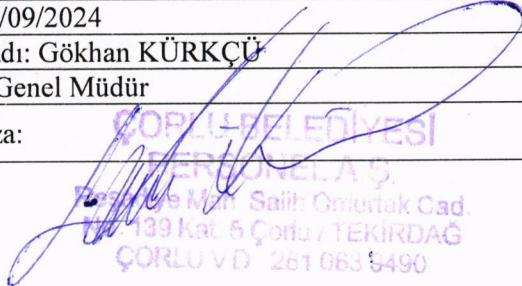 /09/2024
dı: Gökhan KÜRKÇÜ
Genel Müdür
za:
ÇORLU BELEDİYESİ
PERSONEL A.Ş.
Reşadiye Mah. Salih Omurtak Cad.
No: 139 Kat: 5 Çorlu / TEKİRDAĞ
ÇORLU V.D. 261 063 9490